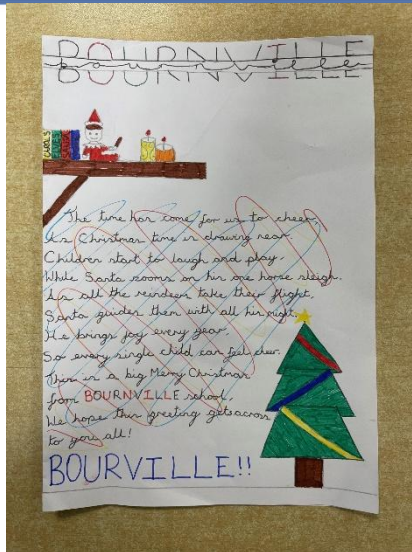 BOURNVILLE
bournville
CAROLS
ELVES
SANTA
The time has come for us to cheer,
its Christmas time is drawing near.
Children start to laugh and play,
While Santa zooms on his one horse sleigh.
As all the reindeer take their flight,
Santa guides them with all his might,
He brings joy every year,
So every single child can feel cheer.
This is a big Merry Christmas
from BOURNVILLE school,
We hope this greeting gets across
to you all!
BOURVILLE!!